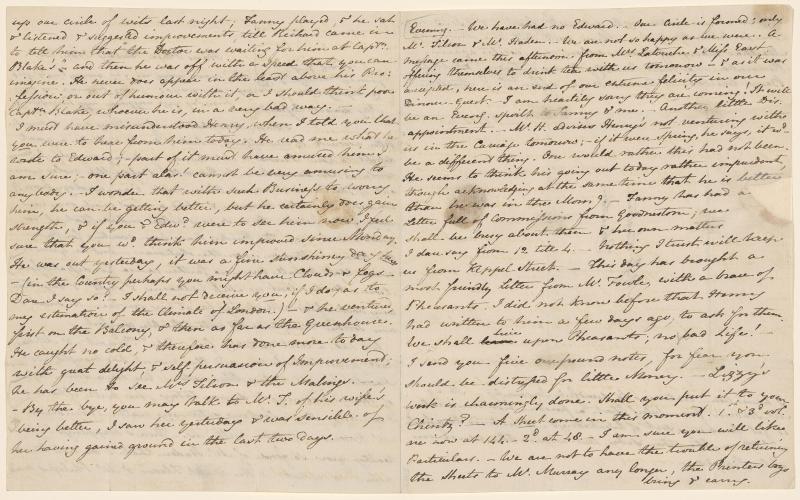 ups our circle of wits last night; Fanny played, & he sat
& listened & suggested improvements, till Richard came in
to tell him that the Doctor was waiting for him at Captn
Blake's – and then he was off with a speed that you can
imagine. He never does appear in the least above his Pro-
fession, or out of humour with it, or I should think poor
Captn Blake, whoever he is, in a very bad way. –
I must have misunderstood Henry, when I told you that
you were to hear from him today. He read me what he
wrote to Edward; – part of it must have amused him I
am sure; – one part alas! cannot be very amusing to
anybody. – I wonder that with such Business to worry
him, he can be getting better, but he certainly does gain
strength, & if you & Edwd were to see him now I feel
sure that you wd think him improved since Monday.
He was out yesterday, it was a fine sunshiney day here
– (in the Country perhaps you might have Clouds & fogs –
Dare I say so? – I shall not deceive you, if I do, as to
my estimation of the Climate of London.) – & he ventured,
first on the Balcony, & then as far as the Greenhouse.
He caught no cold, & therefore has done more today
with great delight, & self persuasion of Improvement;
he has been to see Mrs Tilson & the Malings.
– By the bye, you may talk to Mr T. of his wife's
being better, I saw her yesterday & was sensible of
her having gained ground in the last two days.
Evening. – We have had no Edward. – Our circle is formed; only
Mr Tilson & Mr Haden. – We are not so happy as we were. A
message came this afternoon from Mrs Latouche & Miss East,
offering themselves to drink tea with us tomorrow – & as it was
accepted, here is an end of our extreme felicity in our
Dinner-Guest. – I am heartily sorry they are coming! It will
be an Eveng spoilt to Fanny & me. – Another little Dis-
appointment. – Mr H. advises Henry's not venturing with
us in the Carriage tomorrow; – if it were Spring, he says, it wd
be a different thing. One would rather this had not been.
He seems to think his going out today rather imprudent,
though acknowledging at the same time that he is better
than he was in the Morng. – Fanny has had a
Letter full of Commissions from Goodnestone; we
shall be busy about them & her own matters
I dare say from 12 till 4. – Nothing I trust will keep
us from Keppel Street. – This day has brought a
most friendly Letter from Mr Fowle, with a brace of
Pheasants. I did not know before that Henry
had written to him a few days ago, to ask for them.
We shall live upon Pheasants; no bad Life! –
I send you five one pound notes, for fear you
should be distressed for little Money. – Lizzy's
work is charmingly done. Shall you put it to your
Chintz? – A Sheet come in this moment. 1. & 3d vol.
are now at 144. – 2d at 48. – I am sure you will like
Particulars. – We are not to have the trouble of returning
the Sheets to Mr Murray any longer, the Printers boys
bring & carry.